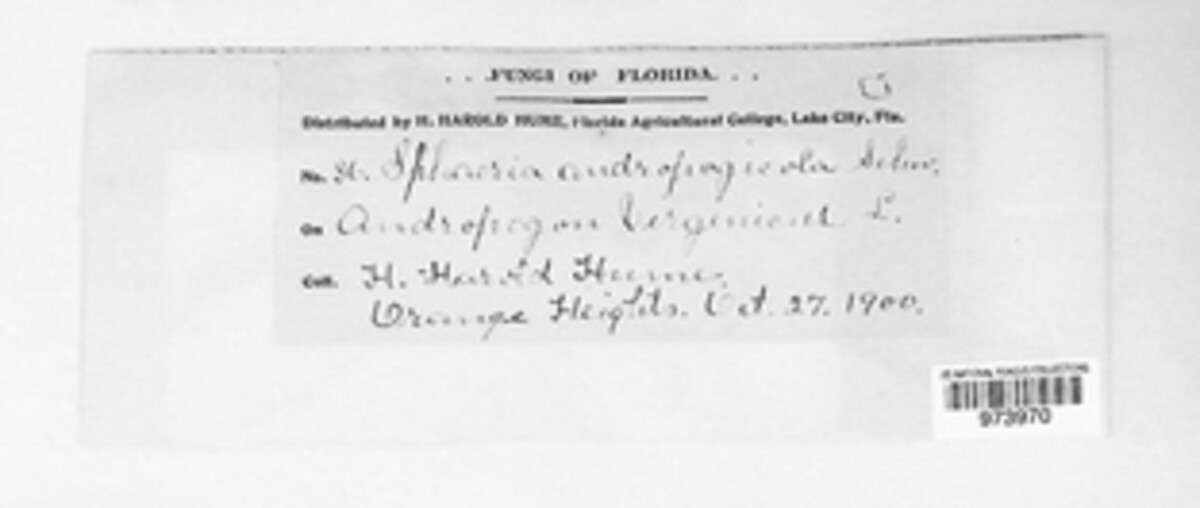 . . .FUNGI OF FLORIDA. . .
Distributed by H. HAROLD HUME, Florida Agricultural College, Lake City, Fla.
No. Sphaeria andropogicola Schw.
On Andropogon Virginicus L.
Coll. H. Harold Hume.
Orange Heights. Oct. 27. 1900.
US NATIONAL FUNGUS COLLECTIONS
973970